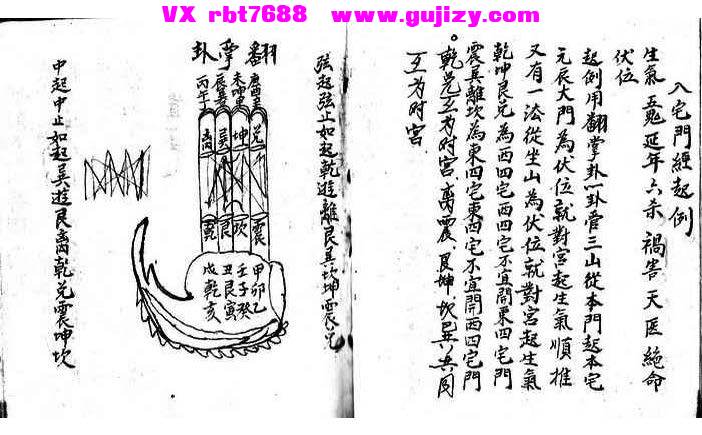 VX rbt7688 www.gujizy.com
入宅門經起例
生氣 五鬼 延年 六杀 禍害 天医 絶命
伏位
起例用翻掌卦一卦管三山從本門起本宅
元辰大門為伏位就對宮起生氣順推
又有一法從坐山為伏位就對宮起生氣
乾坤艮兑為西四宅西四宅不宜開東四宅門
震巽離坎為東四宅東四宅不宜開西四宅門
乾兑互为对宮 离震 艮坤 坎巽 共同
互为对宮
弦起弦止如起乾遊離艮巽坎坤震兑
翻掌卦
庚酉辛
未坤申
辰巽巳
丙午丁
兑
坤
巽
离
震
坎
艮
乾
甲卯乙
壬子癸
丑艮寅
戌乾亥
中起中止如起巽遊艮离乾兑震坤坎